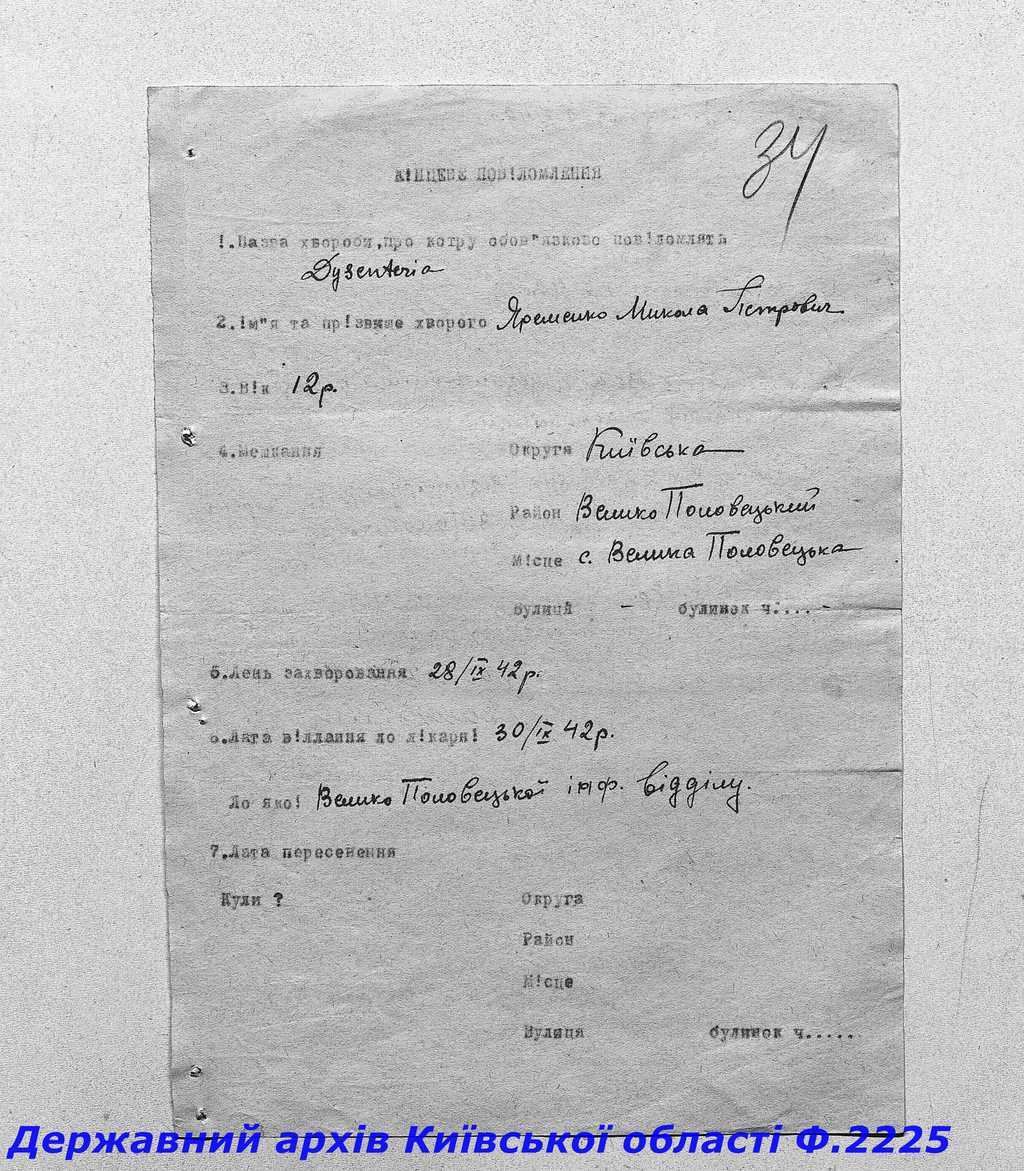 34
КІНЦЕВЕ ПОВ!ДОМЛЕННЯ
!.Назва хвороби,про котру обов"язково пов!домлять
Dysenteria
2.!м"я та пр!звище хворого Яременко Микола Петрович
3.В!к 12р.
4.Мешкання Округа Київська
Район Велико Половецький
М!сце с. Велика Половецька
Вулиця - будинок ч.... -
5.День захворовання 28/IX 42р.
6.Дата в!ддання до л!карн! 30/IX 42р.
До яко! Велико Половецької інф. відділу.
7.Дата пересенення
Куди ? Округа
Район
М!сце
Вулиця будинок ч.....
Державний архів Київської області Ф.2225